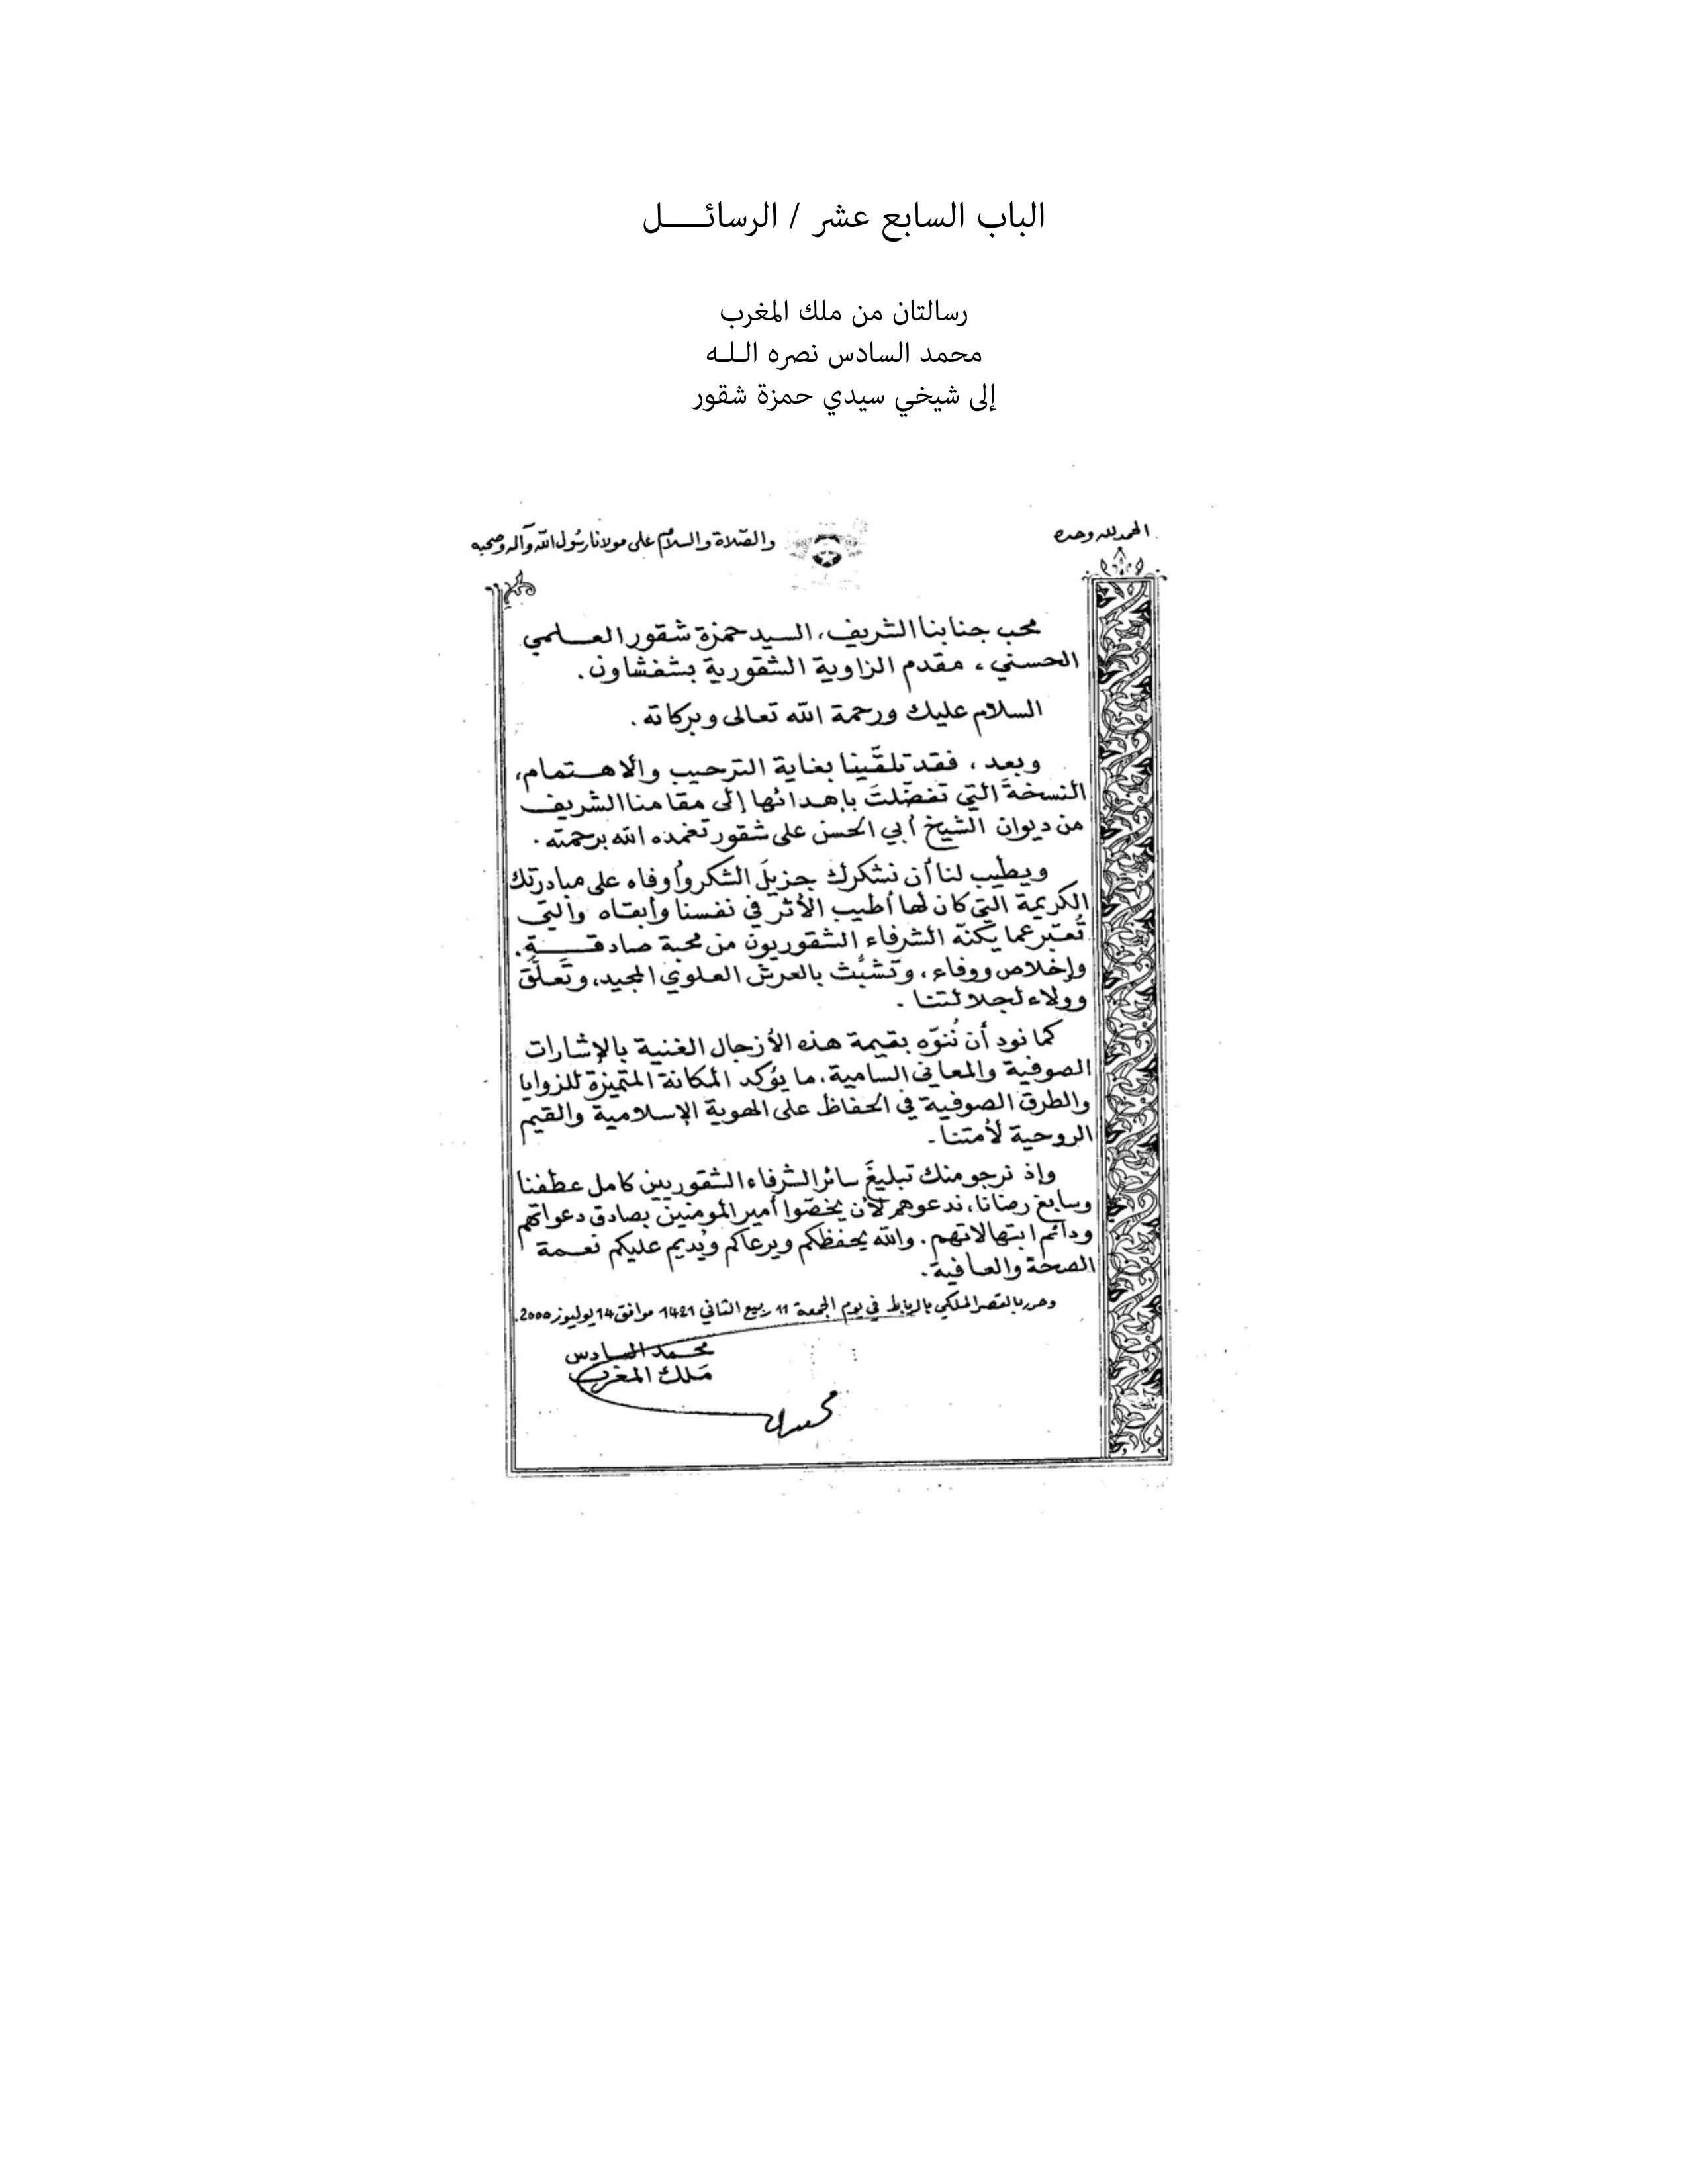 الباب السابع عشر / الرسائـــــل
رسالتان من ملك المغرب
محمد السادس نصره الـلـه
إلى شيخي سيدي حمزة شقور
الحمد لله وحده
والصّلاة والسلام على مولانا رسُول اللّه وآله وصحبه
محب جنابنا الشريف، السيد حمزة شقور العـلـمي
الحسني، مقدم الزاوية الشقورية بشفشاون.
السلام عليك ورحمة الله تعالى وبركاته.
وبعد، فقد تلقّينا بغاية الترحيب والاهـتمام،
النسخةَ التي تفضّلتَ بإهدائها إلى مقامنا الشريف
من ديوان الشيخ أبي الحسن علي شقور تغمده الله برحمته.
ويطيب لنا أن نشكرك جزيلَ الشكر وأوفاه على مبادرتك
الكريمة التي كان لها أطيب الأثر في نفسنا وأبقاه والتي
تُعبّر عما يكنّه الشرفاء الشقوريون من محبة صادقـــةٍ.
وإخلاص ووفاء، وتشبُّث بالعرش العلوي المجيد، وتَعلُّق
وولاء لجلالتنا.
كما نود أن نُنوّه بقيمة هذه الأزجال الغنية بالإشارات
الصوفية والمعاني السامية، ما يؤكد المكانة المتميزة للزوايا
والطرق الصوفية في الحفاظ على الهوية الإسلامية والقيم
الروحية لأمتنا.
وإذ نرجو منك تبليغَ سائر الشرفاء الشقوريين كامل عطفنا
وسابغ رضانا، ندعوهم لأن يخصّوا أمير المومنين بصادق دعواتهم
ودائم ابتهالاتهم. والله يحفظكم ويرعاكم ويُديم عليكم نعـمة
الصحة والعـافية.
وحرر بالقصر الملكي بالرباط في يوم الجمعة 11 ربيع الثاني 1421 موافق 14 يوليوز 2000.
محـمد السادس
مَلك المغرب